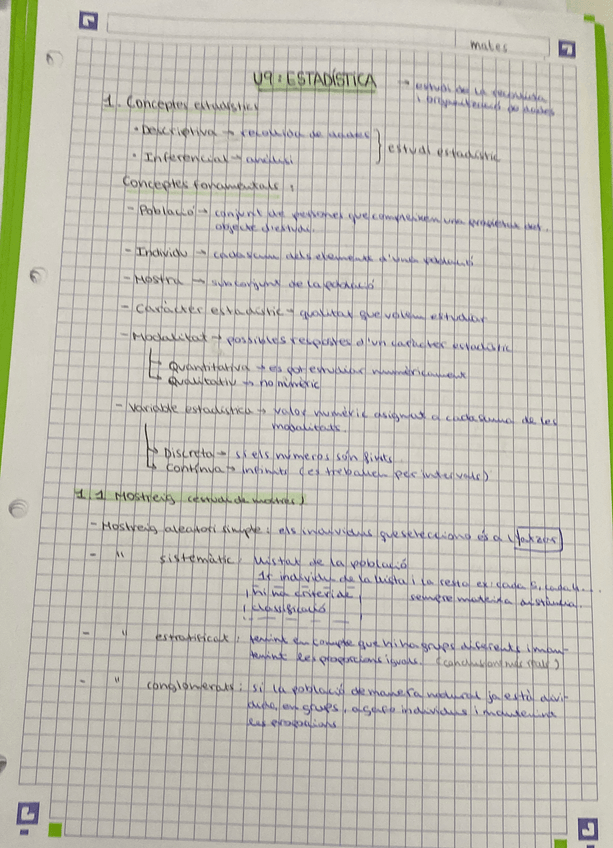 mates
U9: ESTADÍSTICA → estudi de la
i de dades
1. Conceptes estadístics
· Descriptiva → recollida de dades
· Inferencial → anàlisi } estudi estadístic
Conceptes fonamentals:
- Població → conjunt de persones que compleixen una
objecte d'estudi.
- Individu → cadascun dels elements d'una població
- Mostra → subconjunt de la població
- Caràcter estadístic → qualitat que volem estudiar
- Modalitat → possibles respostes d'un caràcter estadístic
Quantitativa → es pot estudiar numèricament
Qualitativ → no numèric
- Variable estadística → valor numèric asignat a cadascuna de les
modalitats.
Discreta → si els números són finits
Contínua → infinits (es treballen per intervals)
1.1 Mostreig (estudi de mostres)
- Mostreig aleatori simple: els individus que selecciono és a l'atzar
- " sistemàtic: llistat de la població
1r individu de la llista i la resta ex: cada 5, cada 4...
hi ha criteri de sempre mateixa distància.
classificació
- " estratificat: tenint en compte que hi ha grups diferents i man-
tenint les proporcions iguals.
- " conglomerats: si la població de manera natural ja està divi-
dida, en grups, agafo individus i mantenint
les proporcions